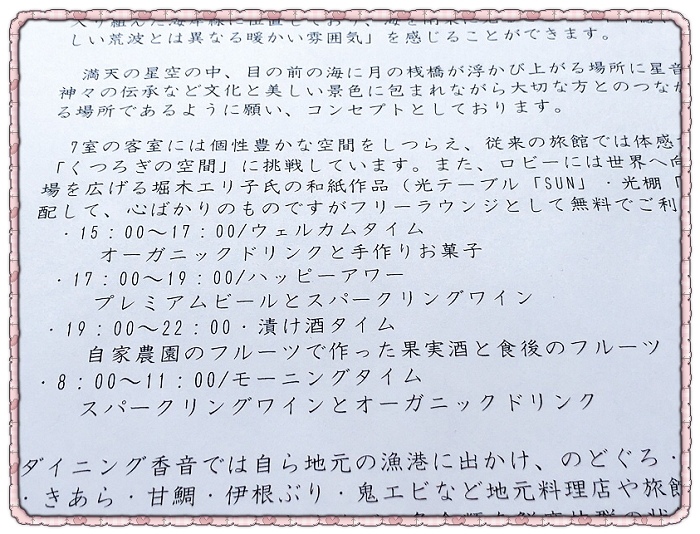 しい荒波とは異なる暖かい雰囲気」を感じることができます。
満天の星空の中、目の前の海に月の桟橋が浮かび上がる場所に星音
神々の伝承など文化と美しい景色に包まれながら大切な方とのつなが
る場所であるように願い、コンセプトとしております。
7室の客室には個性豊かな空間をしつらえ、従来の旅館では体感
「くつろぎの空間」に挑戦しています。また、ロビーには世界へ向
場を広げる堀木エリ子氏の和紙作品（光テーブル「SUN」・光棚「
配して、心ばかりのものですがフリーラウンジとして無料でご利
・15：00～17：00/ウェルカムタイム
オーガニックドリンクと手作りお菓子
・17：00～19：00/ハッピーアワー
プレミアムビールとスパークリングワイン
・19：00～22：00・漬け酒タイム
自家農園のフルーツで作った果実酒と食後のフルーツ
・8：00～11：00/モーニングタイム
スパークリングワインとオーガニックドリンク
ダイニング香音では自ら地元の漁港に出かけ、のどぐろ・
・きあら・甘鯛・伊根ぶり・鬼エビなど地元料理店や旅館